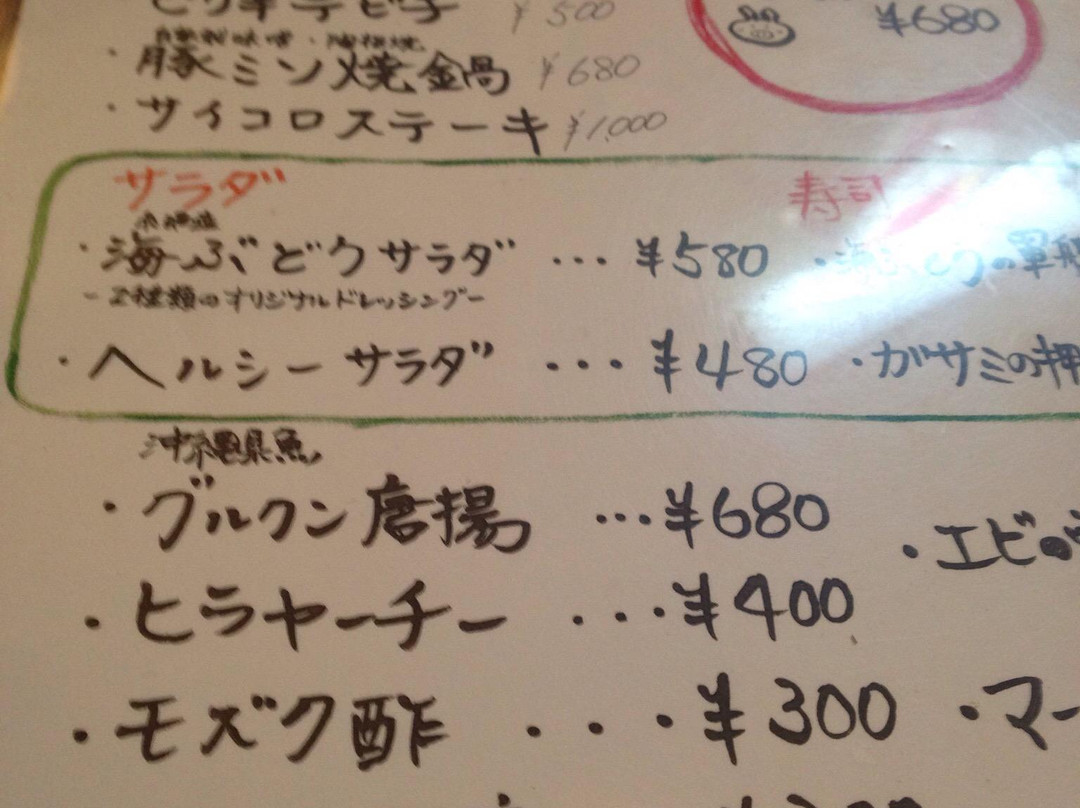 ¥500
¥680
・豚ミン焼鍋 ¥680
・サイコロステーキ ¥1,000
サラダ
寿司
・海ぶどうサラダ ・・・ ¥580
-2種類のオリジナルドレッシング-
・ヘルシーサラダ ・・・ ¥480 ・ガサミの押
沖縄県魚
・グルクン唐揚 ・・・ ¥680
・エビの
・ヒラヤーチー ・・・ ¥400
・モズク酢 ・・・ ¥300 ・マー